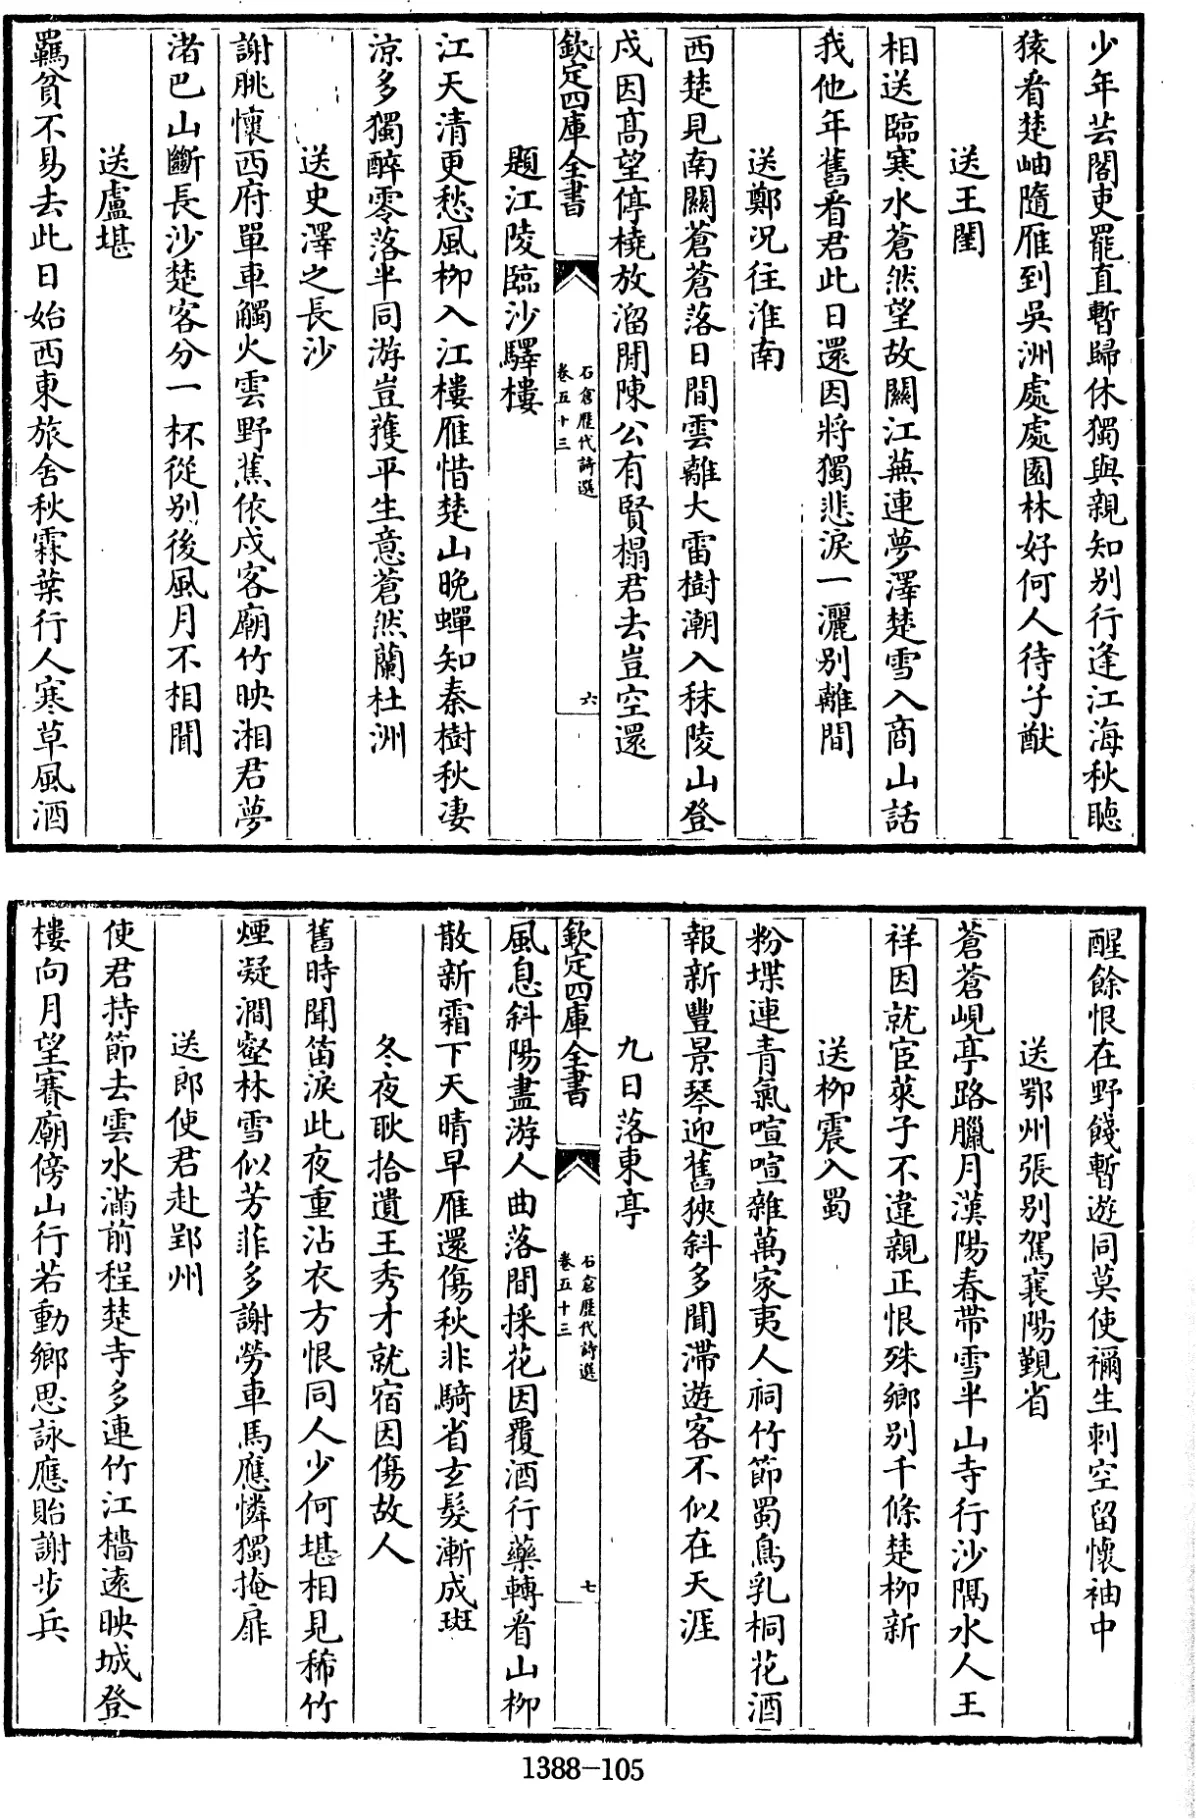 少年芸閣吏罷直暫歸休獨與親知别行逢江海秋聴
猿看楚岫隨雁到吳洲處處園林好何人待子猷
送王閨
相送臨寒水蒼然望故關江蕪連夢澤楚雪入商山話
我他年舊看君此日還因將獨悲淚一灑别離間
送鄭況往淮南
西楚見南關蒼蒼落日間雲離大雷樹潮入秣陵山登
戍因高望停橈放溜閒陳公有賢榻君去豈空還
欽定四庫全書
石倉歷代詩選
卷五十三
六
題江陵臨沙驛樓
江天清更愁風柳入江樓雁惜楚山晚蟬知秦樹秋凄
涼多獨醉零落半同游豈獲平生意蒼然蘭杜洲
送史澤之長沙
謝朓懷西府單車觸火雲野蕉依戍客廟竹映湘君夢
渚巴山斷長沙楚客分一杯從别後風月不相聞
送盧堪
羈貧不易去此日始西東旅舍秋霖葉行人寒草風酒
醒餘恨在野餞暫遊同莫使禰生刺空留懷袖中
送鄂州張别駕襄陽覲省
蒼蒼峴亭路臘月漢陽春帶雪半山寺行沙隔水人王
祥因就宦萊子不違親正恨殊鄉别千條楚柳新
送柳震入蜀
粉堞連青氣喧喧雜萬家夷人祠竹節蜀鳥乳桐花酒
報新豐景琴迎舊狹斜多聞滯遊客不似在天涯
九日落東亭
欽定四庫全書
石倉歷代詩選
卷五十三
七
風息斜陽盡游人曲落間採花因覆酒行藥轉看山柳
散新霜下天晴早雁還傷秋非騎省玄髮漸成斑
冬夜耿拾遺王秀才就宿因傷故人
舊時聞笛淚此夜重沾衣方恨同人少何堪相見稀竹
煙凝澗壑林雪似芳菲多謝勞車馬應憐獨掩扉
送郎使君赴郢州
使君持節去雲水滿前程楚寺多連竹江檣遠映城登
樓向月望賽廟傍山行若動鄉思詠應貽謝步兵
1388-105